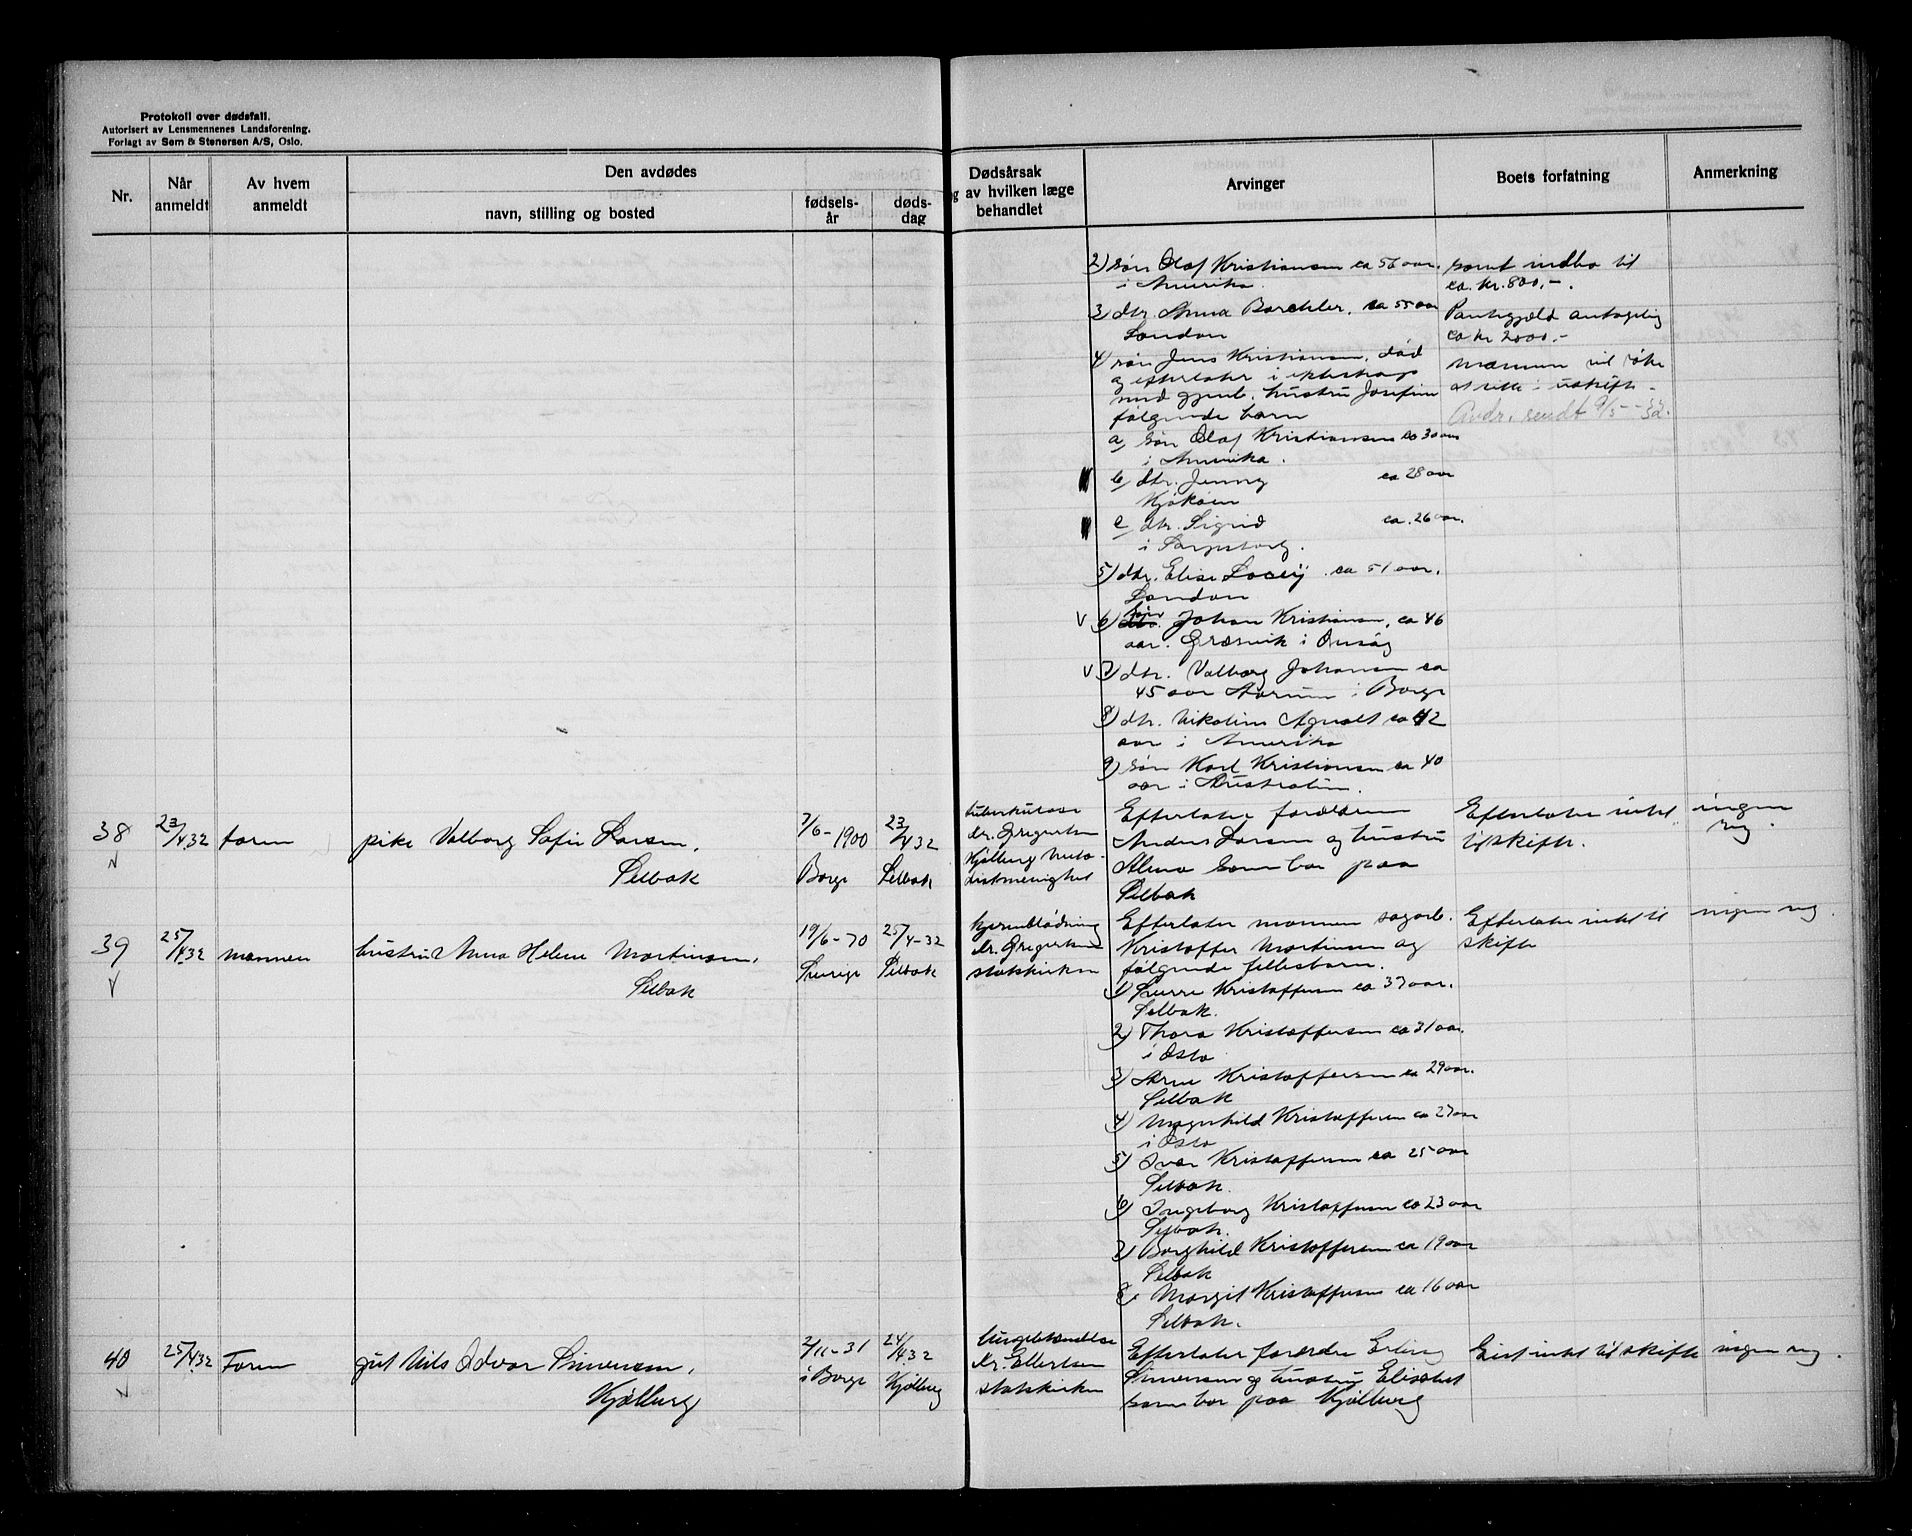 Protokoll over dødsfall.
Autorisert av Lensmennenes Landsforening.
Forlagt av Sem & Stenersen A/S, Oslo.
Nr.
Når
anmeldt
Av hvem
anmeldt
Den avdødes
navn, stilling og bosted
fødsels-
år
døds-
dag
Dødsårsak
og av hvilken læge
behandlet
Arvinger
Boets forfatning
Anmerkning
2) søn Olaf Kristiansen ca 56 aar.
i Amerika.
3) dtr. Anna Borchler. ca 55 aar
London
4) søn Jens Kristiansen, død
og efterlater i ekteskap
med gjenl. hustru Josefine
følgende barn
a) søn Olaf Kristiansen ca 30 aar
i Amerika.
b) dtr. Jenny ca 28 aar
Kjøkøen
c) dtr. Sigrid ca. 26 aar.
i Sarpsborg.
5) dtr. Elise ca 51 aar.
London
V 6) søn Johan Kristiansen, ca 46
aar. Græsvik i Onsøy
V 7) dtr. Valborg Johansen ca
45 aar Aarum i Borge
8) dtr. Nikoline Agnalt ca 42
aar i Amerika
9) søn Karl Kristiansen ca 40
aar i Australien.
samt indbo til
ca. kr. 800,-.
Pantegjæld antagelig
ca kr 2000.-
mannen vil søke
at sitte i uskifte -
Avdr. sendt 9/5 - 32.
38
V
23/4 32
faren
pike Valborg Sofie Larsen,
Selbak
7/6-1900
Borge
23/4 32
Selbak
tuberkulose
dr. Gregertsen
Kjølberg meto-
distmenighet
Efterlater forældrene
Anders Larsen og hustru
Alma som bor paa
Selbak
Efterlater intet
til skifte.
ingen
reg.
39
V
25/4 32
mannen
hustru Anna Helene Martinsen,
Selbak
19/6-70
Sverige
25/4-32
Selbak
hjerneblødning
dr. Gregertsen
statskirken
Efterlater mannen sagarb.
Kristoffer Martinsen og
følgende fellesbarn.
1) Sverre Kristoffersen ca 37 aar.
Selbak.
2) Thora Kristoffersen ca 31 aar.
i Oslo
3) Arne Kristoffersen ca 29 aar.
Selbak
4) Magnhild Kristoffersen ca 27 aar
i Oslo
5) Ivar Kristoffersen ca 25 aar
Selbak.
6) Ingeborg Kristoffersen ca 23 aar
Selbak.
7) Borghild Kristoffersen ca 19 aar
Selbak
8) Margit Kristoffersen ca 16 aar
Selbak.
Efterlater intet til
skifte
ingen reg.
40
V
25/4 32
Faren
gut Nils Edvar Simensen,
Kjølberg
2/11-31
i Borge
24/4 32
Kjølberg
lungebetændelse
Dr. Ellertsen
statskirken
Efterlater forældre Erling
Simensen og hustru Elisabet
som bor paa Kjølberg
Eiet intet til skifte
ingen reg.